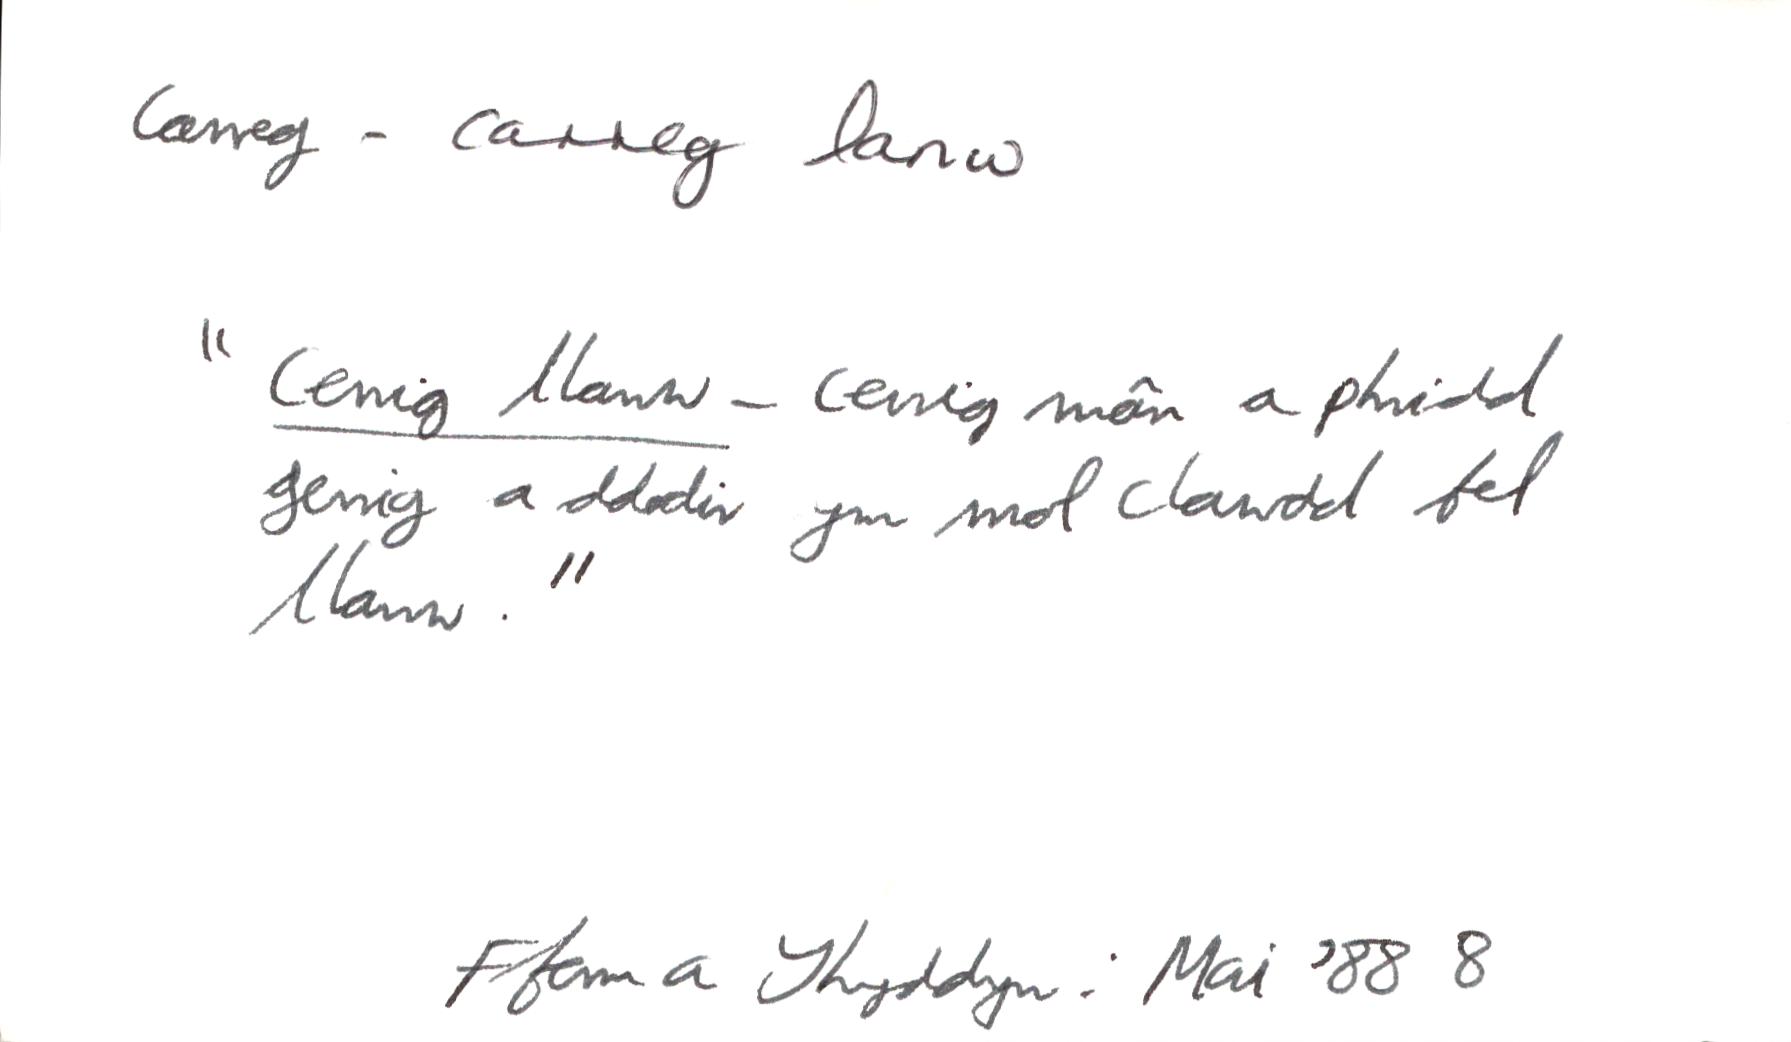 Carreg - carreg lanw
"Cerrig llanw - cerrig mân a phridd
gerrig a ddodir ym mol clawdd fel
llanw."
Fferm a Thyddyn: Mai '88 8